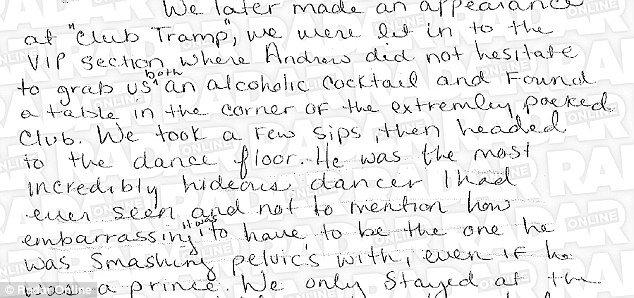 We later made an appearance
at "Club Tramp", we were let in to the
VIP section where Andrew did not hesitate
to grab us both an alcoholic cocktail and found
a table in the corner of the extremley packed
Club. We took a few sips, then headed
to the dance floor. He was the most
incredibly hideous dancer I had
ever seen and not to mention how
embarrassing it was to have to be the one he
was smashing pelvics with, even if he
was a prince. We only stayed at the
© RadarOnline
RADAR ONLINE